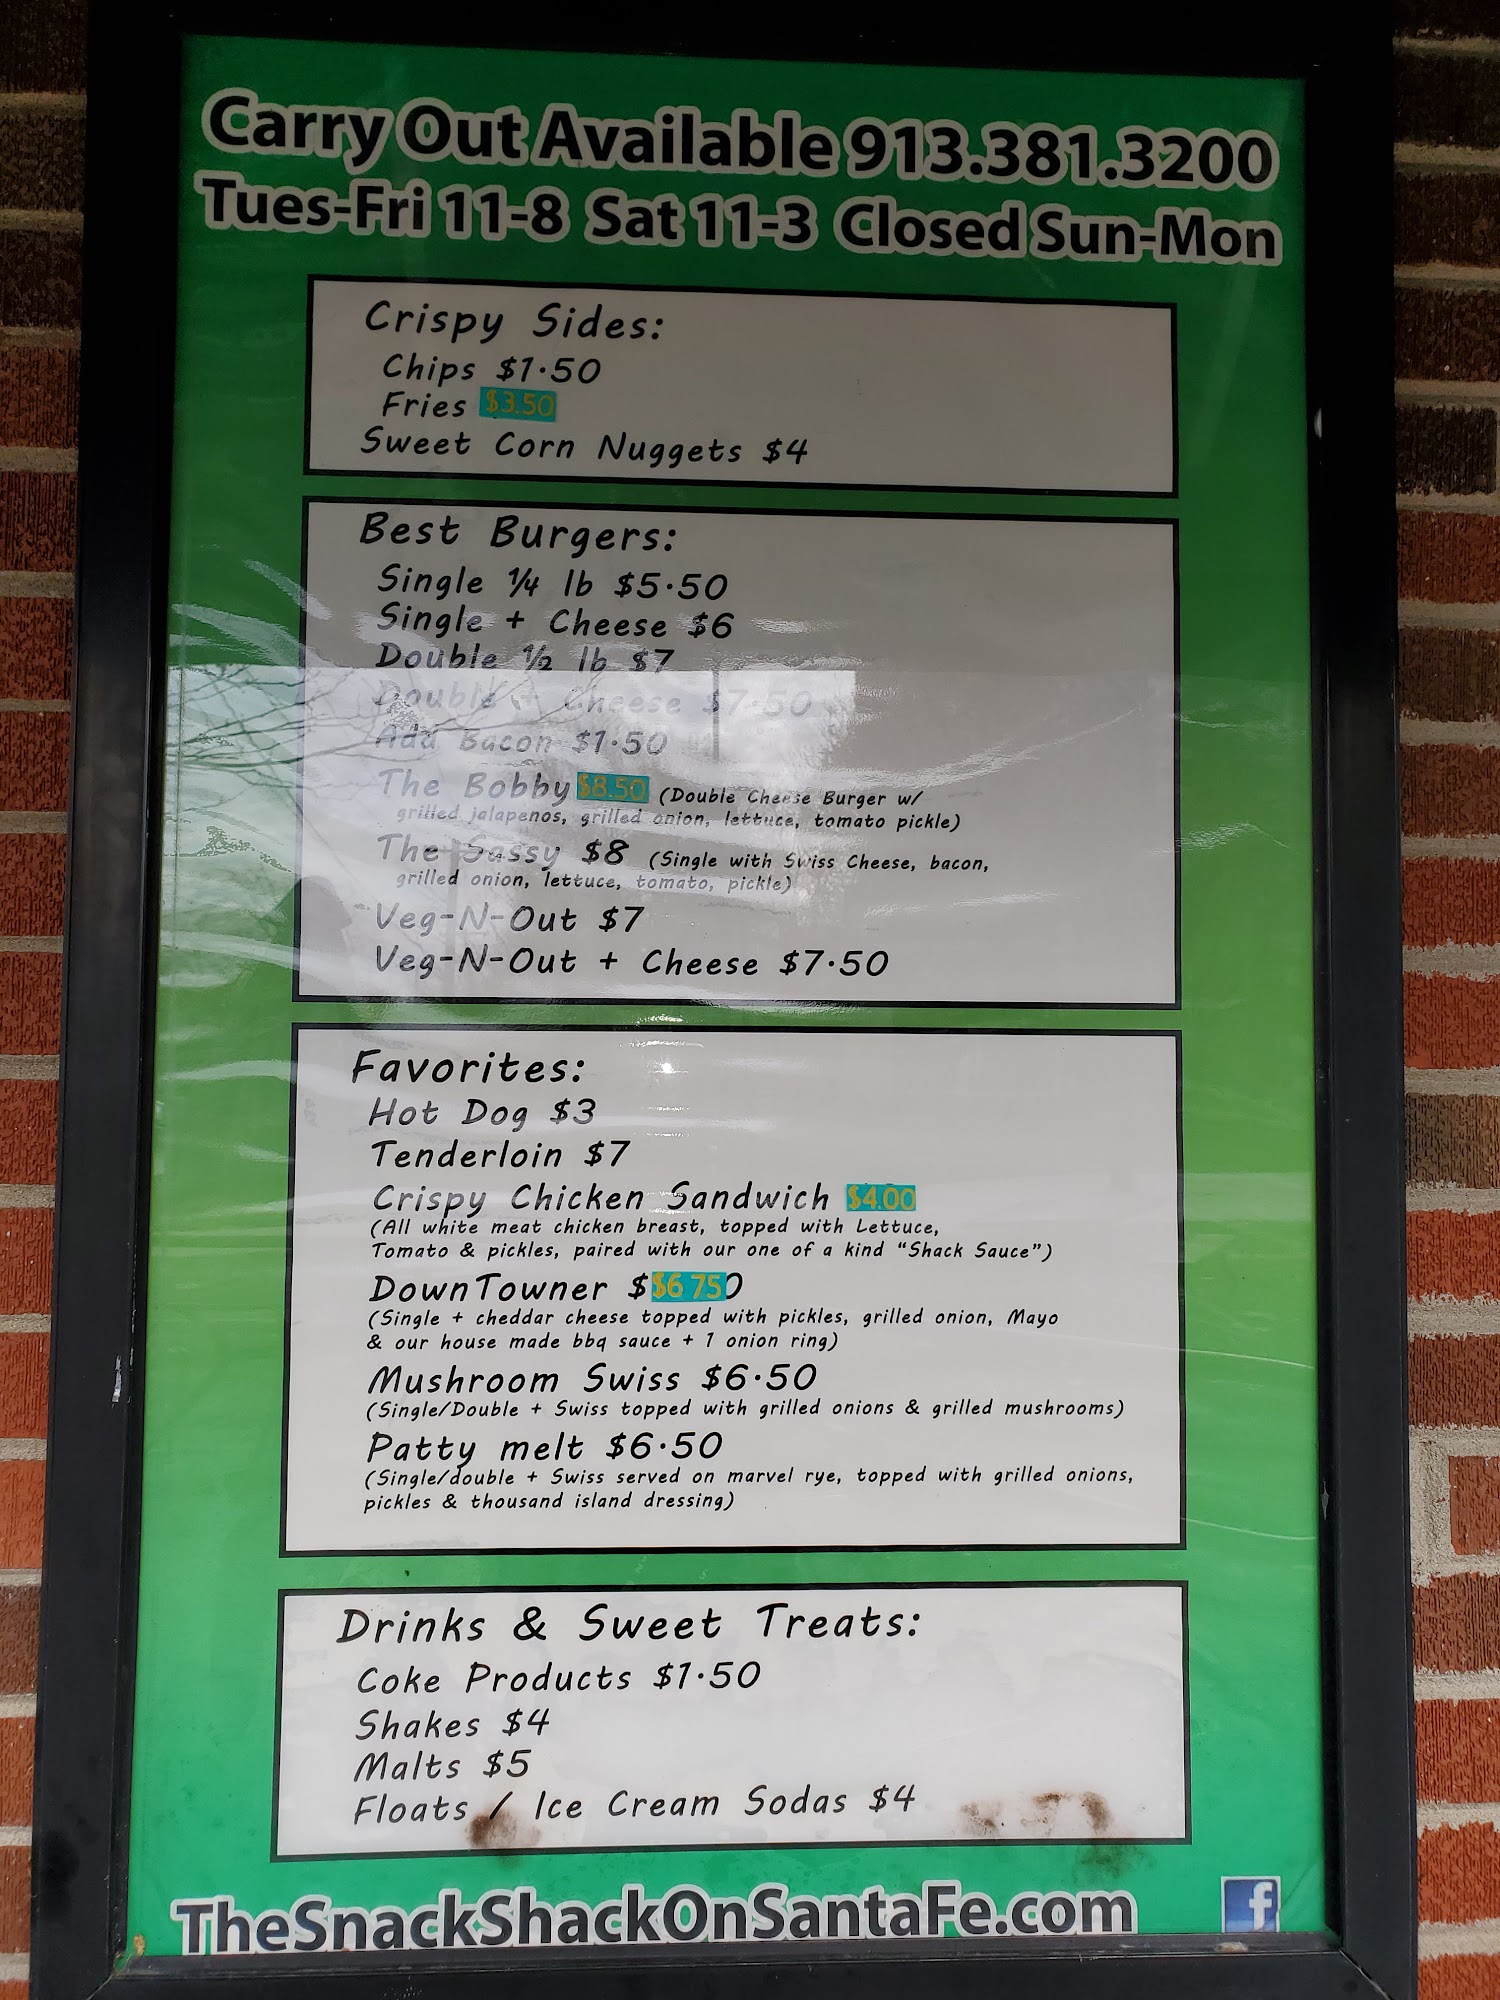 Carry Out Available 913.381.3200
Tues-Fri 11-8 Sat 11-3 Closed Sun-Mon
Crispy Sides:
Chips $1.50
Fries $3.50
Sweet Corn Nuggets $4
Best Burgers:
Single 1/4 lb $5.50
Single + Cheese $6
Double 1/2 lb $7
Double + Cheese $7.50
Add Bacon $1.50
The Bobby $8.50 (Double Cheese Burger w/
grilled jalapenos, grilled onion, lettuce, tomato pickle)
The Sassy $8 (Single with Swiss Cheese, bacon,
grilled onion, lettuce, tomato, pickle)
Veg-N-Out $7
Veg-N-Out + Cheese $7.50
Favorites:
Hot Dog $3
Tenderloin $7
Crispy Chicken Sandwich $4.00
(All white meat chicken breast, topped with Lettuce,
Tomato & pickles, paired with our one of a kind “Shack Sauce”)
DownTowner $$6 750
(Single + cheddar cheese topped with pickles, grilled onion, Mayo
& our house made bbq sauce + 1 onion ring)
Mushroom Swiss $6.50
(Single/Double + Swiss topped with grilled onions & grilled mushrooms)
Patty melt $6.50
(Single/double + Swiss served on marvel rye, topped with grilled onions,
pickles & thousand island dressing)
Drinks & Sweet Treats:
Coke Products $1.50
Shakes $4
Malts $5
Floats / Ice Cream Sodas $4
TheSnackShackOnSantaFe.com f